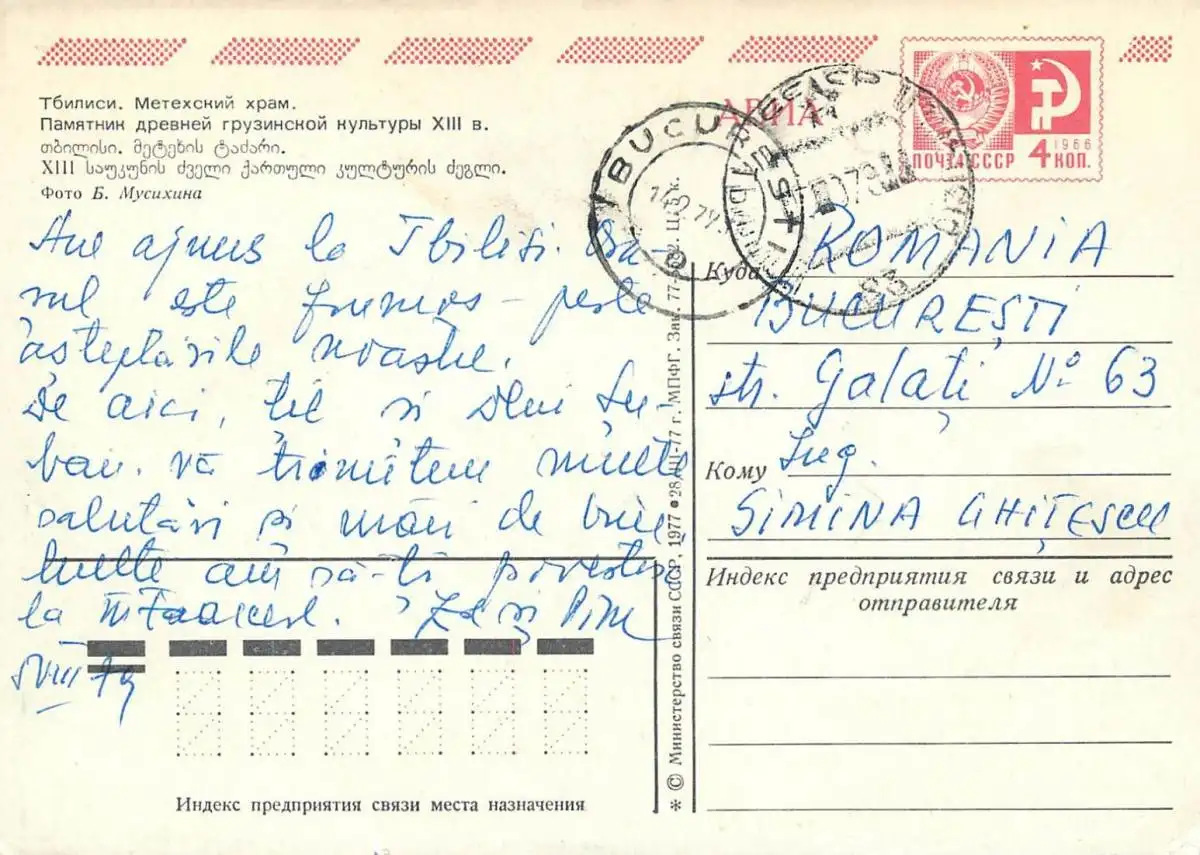 Тбилиси. Метехский храм.
Памятник древней грузинской культуры XIII в.
თბილისი. მეტეხის ტაძარი.
XIII საუკუნის ძველი ქართული კულტურის ძეგლი.
Фото Б. Мусихина
АВИА
ПОЧТА СССР
4 КОП.
1966
BUCUREȘTI
Am ajuns la Tbilisi. Ora-
șul este frumos – peste
așteptările noastre.
De aici, ție și Dlui Șer-
ban vă trimitem multe
salutări și mâri de bine
multe am să-ți povestesc
la
VIII 79
Куда ROMANIA
BUCUREȘTI
str. Galați Nº 63
Кому Ing.
SIMINA GHIȚESCU
Индекс предприятия связи и адрес
отправителя
Индекс предприятия связи места назначения
* © Министерство связи СССР, 1977 ● 28/VII-77 г. МПФГ. Зак. 77-